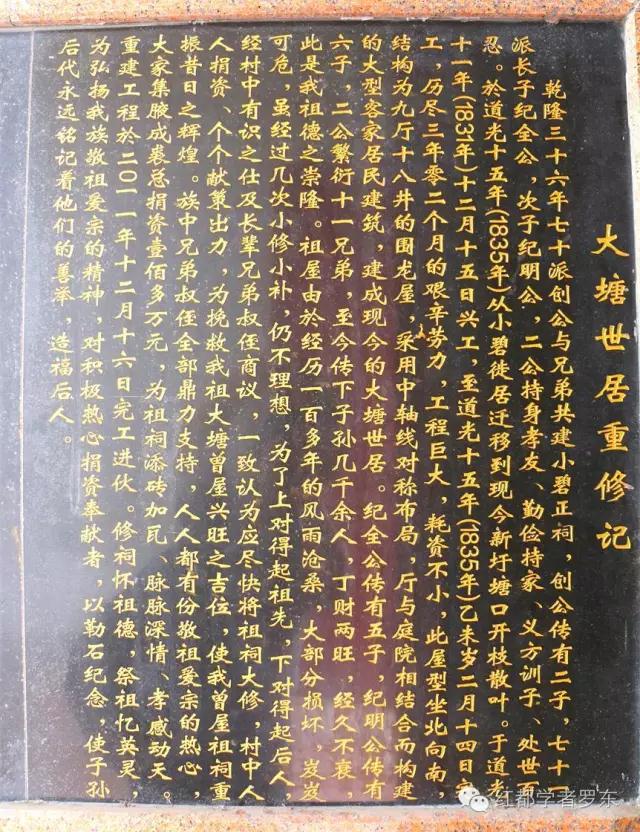 大塘世居重修记
乾隆三十六年七十派创公与兄弟共建小碧正祠，创公传有二子，七十一
派长子纪全公，次子纪明公，二公持身孝友、勤俭持家、义方训子、处世百
忍。於道光十五年(1835年)从小碧徙居迁移到现今新圩塘口开枝散叶。于道光
十一年(1831年)十二月十五日兴工，至道光十五年(1835年)乙未岁二月十四日
工，历尽三年零二个月的艰辛劳力，工程巨大，耗资不小，此屋型坐北向南，
结构为九厅十八井的围龙屋，采用中轴线对称布局，厅与庭院相结合而构建
的大型客家居民建筑，建成现今的大塘世居。纪全公传有五子，纪明公传有
六子，二公繁衍十一兄弟，至今传下子孙几千余人，丁财两旺，经久不衰，
此是我祖德之崇隆。祖屋由於经历一百多年的风雨沧桑，大部分损坏，岌岌
可危，虽经过几次小修小补，仍不理想，为了上对得起祖先，下对得起后人，
经村中有识之仕及长辈兄弟叔侄商议，一致认为应尽快将祖祠大修，村中人
人捐资、个个献策出力，为挽救我祖大塘曾屋兴旺之吉位，使我曾屋祖祠重
振昔日之辉煌。族中兄弟叔侄全部鼎力支持，人人都有份敬祖爱宗的热心，
大家集胶成裘总捐资壹佰多万元，为祖祠添砖加瓦、脉脉深情、孝感动天。
重建工程於二0一一年十二月十六日完工进伙。修祠怀祖德，祭祖忆英灵，
为弘扬我族敬祖爱宗的精神，对积极热心捐资奉献者，以勒石纪念，使子孙
后代永远铭记着他们的善举，造福后人。
红都学者罗东